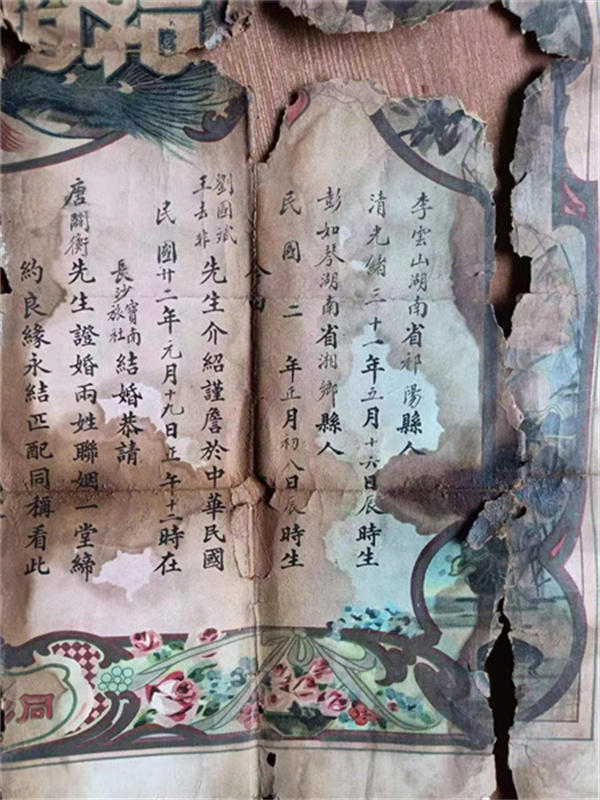 李雲山湖南省祁陽縣人
清光緒三十一年五月十六日辰時生
彭如琴湖南省湘鄉縣人
民國二年正月初八日辰時生
劉國斌
王去非
先生介紹謹詹於中華民國
民國廿二年元月十九日正午十二時在
長沙寶南旅社結婚恭請
唐闓衡先生證婚兩姓聯姻一堂締
約良緣永結匹配同稱看此
同